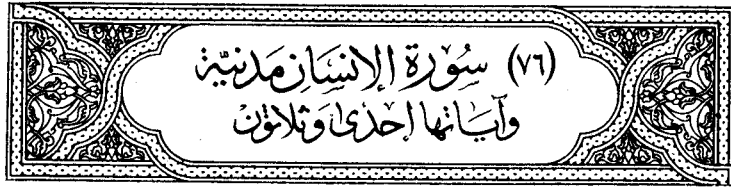 (٧٦) سُورَة الإنسَان مَدنيّة
وآيَاتها إحدى وَثلاثون